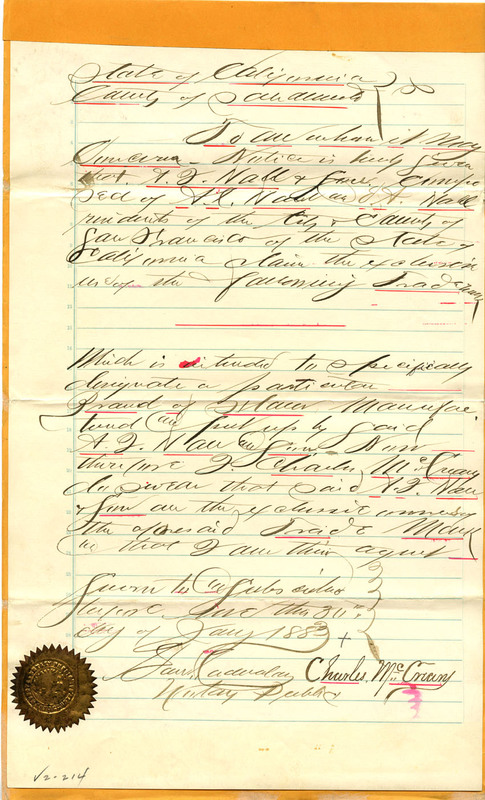 State of California
County of Sacramento
To all whom it May
Concern - Notice is hereby given
that A. L. Nall & Sons, Compo
sed of A. L. Nall and
residents of the City & County of
San Francisco of the State of
California claim the exclusive
use of the following Trade Mark
Which is intended to specifically
designate a particular
Brand of Manufac
tured and put up by said
Now
therefore I Charles McCreary
do swear that said
& Son are the exclusive owners of
the aforesaid Trade Mark
and that I am their agent
Sworn to and Subscribed
before me this
day of Jany 1883
Charles McCreary
Notary Public
V2-214